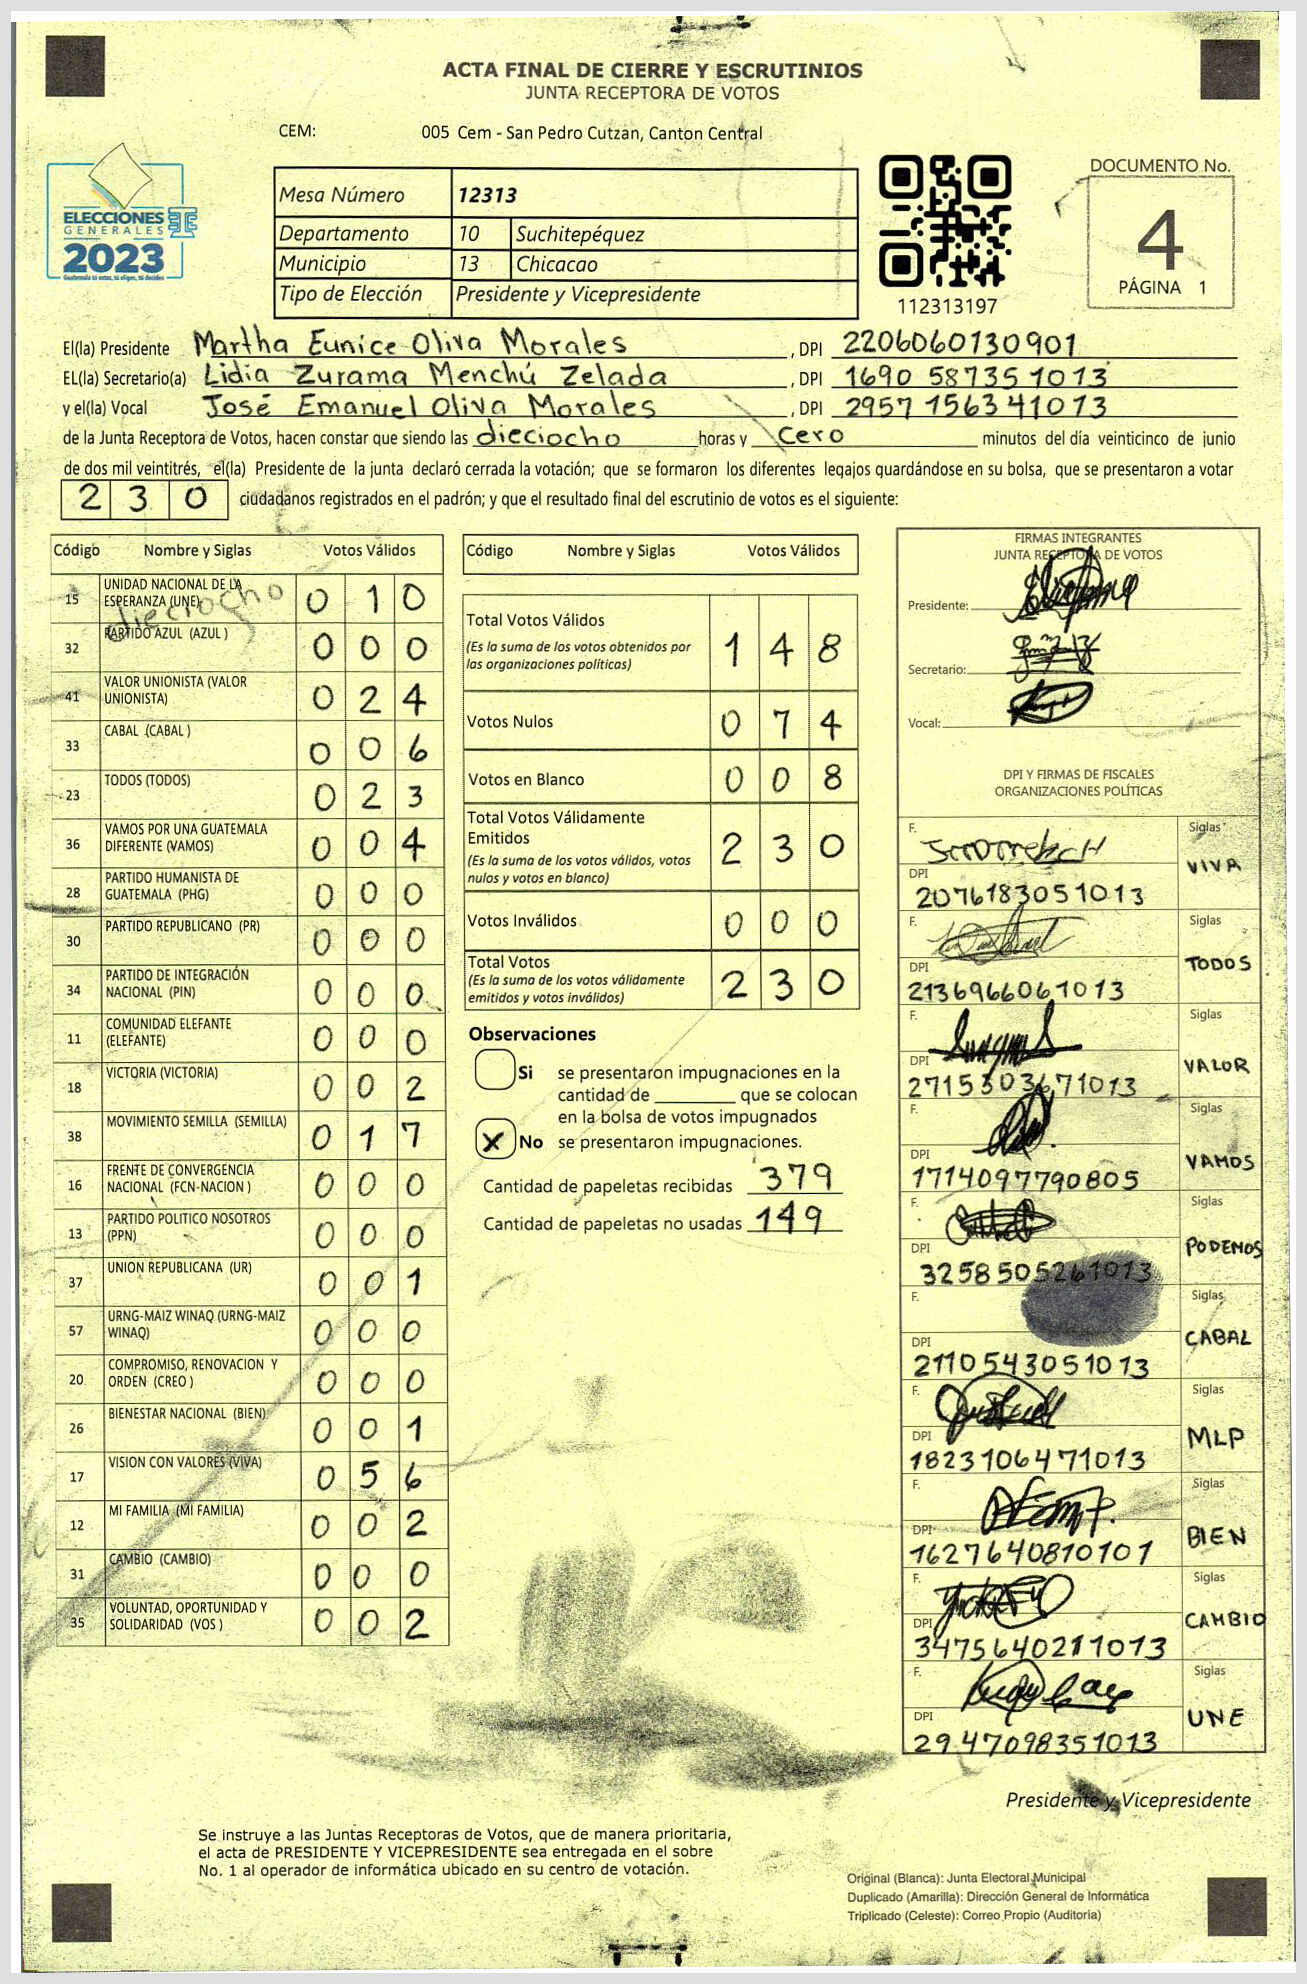 ACTA FINAL DE CIERRE Y ESCRUTINIOS
JUNTA RECEPTORA DE VOTOS
CEM: 005 Cem - San Pedro Cutzan, Canton Central
ELECCIONES
GENERALES
2023
Mesa Número 12313
Departamento 10 Suchitepéquez
Municipio 13 Chicacao
Tipo de Elección Presidente y Vicepresidente
112313197
DOCUMENTO No.
4
PÁGINA 1
El(la) Presidente Martha Eunice Oliva Morales , DPI 2206060130901
EL(la) Secretario(a) Lidia Zurama Menchú Zelada , DPI 1690 58735 1013
y el(la) Vocal José Emanuel Oliva Morales , DPI 2957 1563 41013
de la Junta Receptora de Votos, hacen constar que siendo las dieciocho horas y cero minutos del día veinticinco de junio
de dos mil veintitrés, el(la) Presidente de la junta declaró cerrada la votación; que se formaron los diferentes legajos guardándose en su bolsa, que se presentaron a votar
230 ciudadanos registrados en el padrón; y que el resultado final del escrutinio de votos es el siguiente:
Código Nombre y Siglas Votos Válidos
15 UNIDAD NACIONAL DE LA ESPERANZA (UNE) 0 1 0
dieciocho
32 PARTIDO AZUL (AZUL ) 0 0 0
41 VALOR UNIONISTA (VALOR UNIONISTA) 0 2 4
33 CABAL (CABAL ) 0 0 6
23 TODOS (TODOS) 0 2 3
36 VAMOS POR UNA GUATEMALA DIFERENTE (VAMOS) 0 0 4
28 PARTIDO HUMANISTA DE GUATEMALA (PHG) 0 0 0
30 PARTIDO REPUBLICANO (PR) 0 0 0
34 PARTIDO DE INTEGRACIÓN NACIONAL (PIN) 0 0 0
11 COMUNIDAD ELEFANTE (ELEFANTE) 0 0 0
18 VICTORIA (VICTORIA) 0 0 2
38 MOVIMIENTO SEMILLA (SEMILLA) 0 1 7
16 FRENTE DE CONVERGENCIA NACIONAL (FCN-NACION ) 0 0 0
13 PARTIDO POLITICO NOSOTROS (PPN) 0 0 0
37 UNION REPUBLICANA (UR) 0 0 1
57 URNG-MAIZ WINAQ (URNG-MAIZ WINAQ) 0 0 0
20 COMPROMISO, RENOVACION Y ORDEN (CREO ) 0 0 0
26 BIENESTAR NACIONAL (BIEN) 0 0 1
17 VISION CON VALORES (VIVA) 0 5 6
12 MI FAMILIA (MI FAMILIA) 0 0 2
31 CAMBIO (CAMBIO) 0 0 0
35 VOLUNTAD, OPORTUNIDAD Y SOLIDARIDAD (VOS ) 0 0 2
Código Nombre y Siglas Votos Válidos
Total Votos Válidos 1 4 8
(Es la suma de los votos obtenidos por
las organizaciones políticas)
Votos Nulos 0 7 4
Votos en Blanco 0 0 8
Total Votos Válidamente
Emitidos 2 3 0
(Es la suma de los votos válidos, votos
nulos y votos en blanco)
Votos Inválidos 0 0 0
Total Votos
(Es la suma de los votos válidamente 2 3 0
emitidos y votos inválidos)
Observaciones
Si se presentaron impugnaciones en la
cantidad de ________ que se colocan
en la bolsa de votos impugnados
X No se presentaron impugnaciones.
Cantidad de papeletas recibidas 379
Cantidad de papeletas no usadas 149
FIRMAS INTEGRANTES
JUNTA RECEPTORA DE VOTOS
Presidente:
Secretario:
Vocal:
DPI Y FIRMAS DE FISCALES
ORGANIZACIONES POLÍTICAS
F. Siglas VIVA
DPI 2076183051013
F. Siglas TODOS
DPI 2136966061013
F. Siglas VALOR
DPI 2715303671013
F. Siglas VAMOS
DPI 1714097790805
F. Siglas PODEMOS
DPI 3258505261013
F. Siglas CABAL
DPI 2110543051013
F. Siglas MLP
DPI 1823106471013
F. Siglas BIEN
DPI 1627640810101
F. Siglas CAMBIO
DPI 3475640211013
F. Siglas UNE
DPI 2947098351013
Presidente y Vicepresidente
Se instruye a las Juntas Receptoras de Votos, que de manera prioritaria,
el acta de PRESIDENTE Y VICEPRESIDENTE sea entregada en el sobre
No. 1 al operador de informática ubicado en su centro de votación.
Original (Blanca): Junta Electoral Municipal
Duplicado (Amarilla): Dirección General de Informática
Triplicado (Celeste): Correo Propio (Auditoria)